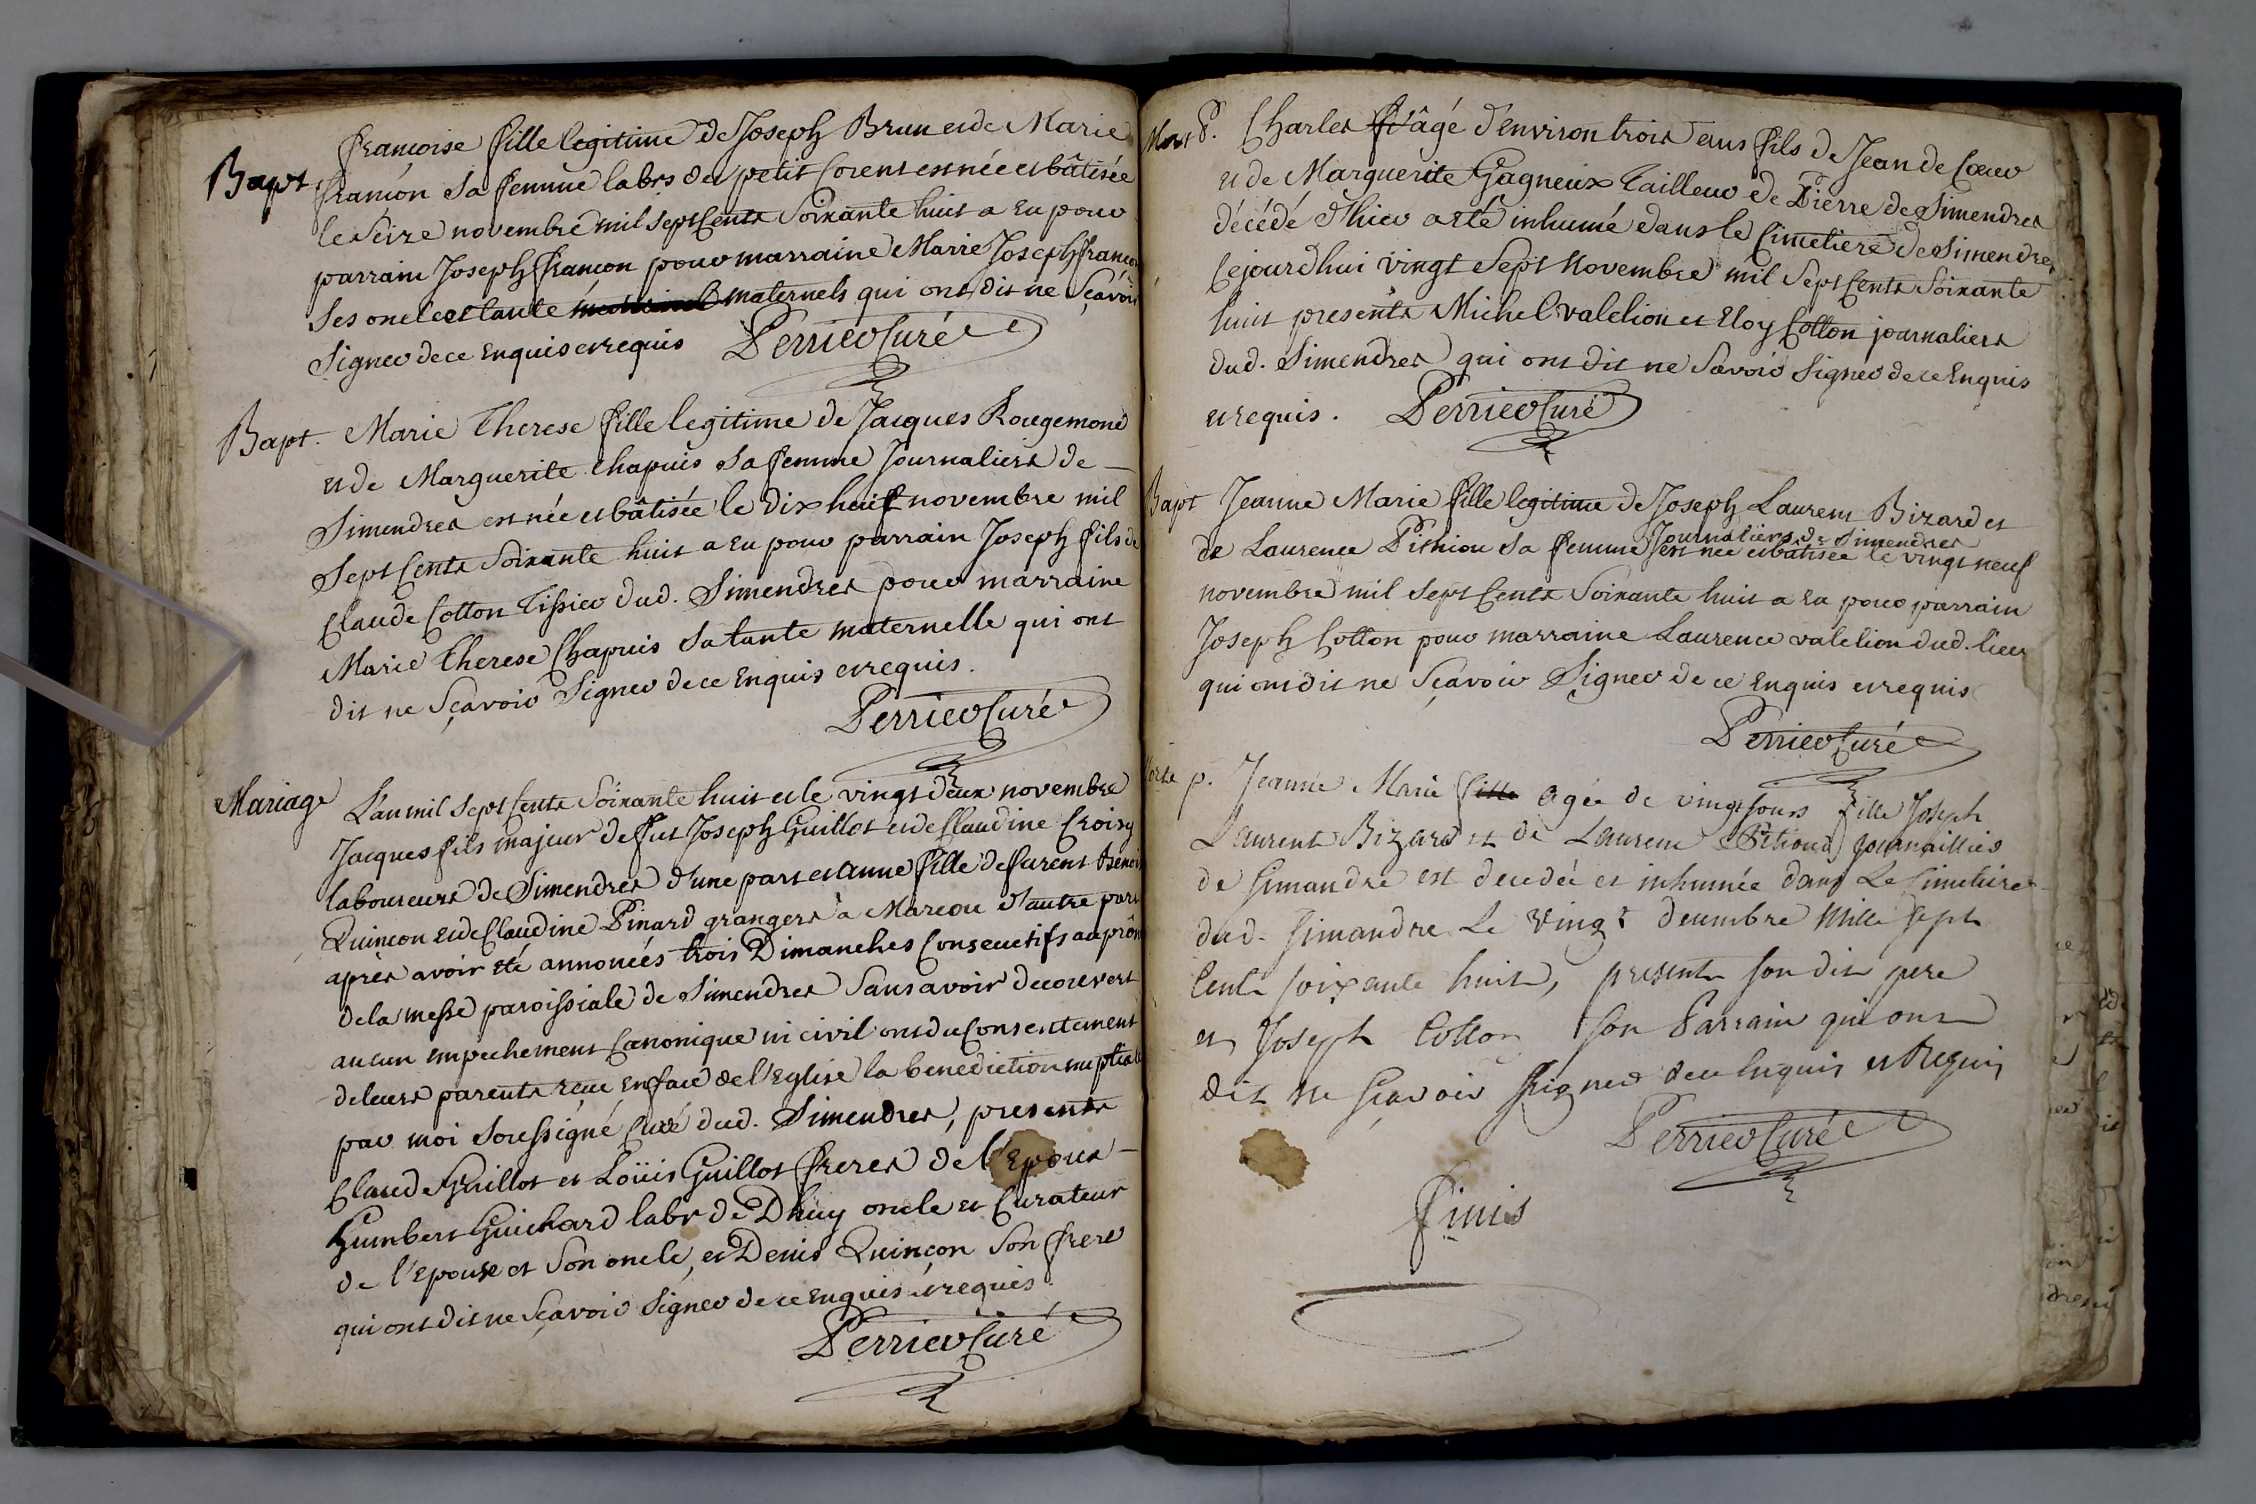 françoise fille legitime de Joseph Brun et de Marie
Bapt. françon sa femme labrs de petit Corent est née et bâtisée
le seize novembre mil sept Cents soixante huit a eu pour
parrain Joseph françon pour marraine Marie Joseph françon
ses oncle et tante maternels qui ont dit ne sçavoir
signer de ce enquis et requis Perrier Curé
Bapt. Marie Therese fille legitime de Jacques Rougemond
et de Marguerite Chapuis sa femme Journaliers de
Simendres est née et bâtisée le dix huit novembre mil
sept Cents soixante huit a eu pour parrain Joseph fils de
Claude Cotton Tissier dud. Simendres pour marraine
Marie Therese Chapuis sa tante maternelle qui ont
dit ne sçavoir signer de ce enquis et requis.
Perrier Curé
Mariage L'an mil sept Cents soixante huit et le vingt deux novembre
Jacques fils majeur de fut Joseph Guillot et de Claudine Croisy
laboureurs de Simendres d'une part et Anne fille de furent Benoit
Quinçon et de Claudine Pinard grangers à Marcou d'autre part
après avoir été annoncés trois Dimanches Consecutifs au prône
de la messe paroissiale de Simendres sans avoir decouvert
aucun empechement Canonique ni civil ont du Consentement
de leurs parents reçu en face de l'Eglise la benediction nuptiale
par moi soussigné Curé dud. Simendres, presents
Claude Guillot et Loüis Guillot freres de l'Epoux
Humbert Guichard labr de Dhuy oncle et Curateur
de l'Epouse et son oncle, et Denis Quinçon son frere
qui ont dit ne sçavoir signer de ce enquis et requis.
Perrier Curé
Mort P. Charles âgé d'environ trois ans fils de Jean de Cœur
et de Marguerite Gagneux tailleur de Pierre de Simendres
décédé d'hier a eté inhumé dans le Cimetiere de Simendres
Cejourdhui vingt sept Novembre mil sept Cents soixante
huit presents Michel valelion et Eloy Cotton journaliers
dud. Simendres qui ont dit ne savoir signer de ce enquis
et requis. Perrier Curé
Bapt Jeanne Marie fille legitime de Joseph Laurent Bizard et
Journaliers de Simendres
de Laurence Pithiou sa femme est née et bâtisée le vingt neuf
novembre mil sept Cents soixante huit a eu pour parrain
Joseph Cotton pour marraine Laurence valelion dud. lieu
qui ont dit ne sçavoir signer de ce enquis et requis
Perrier Curé
p. Jeanne Marie fille agée de vingt jours fille Joseph
Laurent Bizard et de Laurence Pithoud journaillier
de Simandre est decedée et inhumée dans Le Simetiere
dud. Simandre Le vingt decembre Mille sept
Cents soixante huit, presents son dit pere
et Joseph Cotton son Parrain qui ont
dit ne sçavoir signer de ce enquis et Requis
Perrier Curé
finis